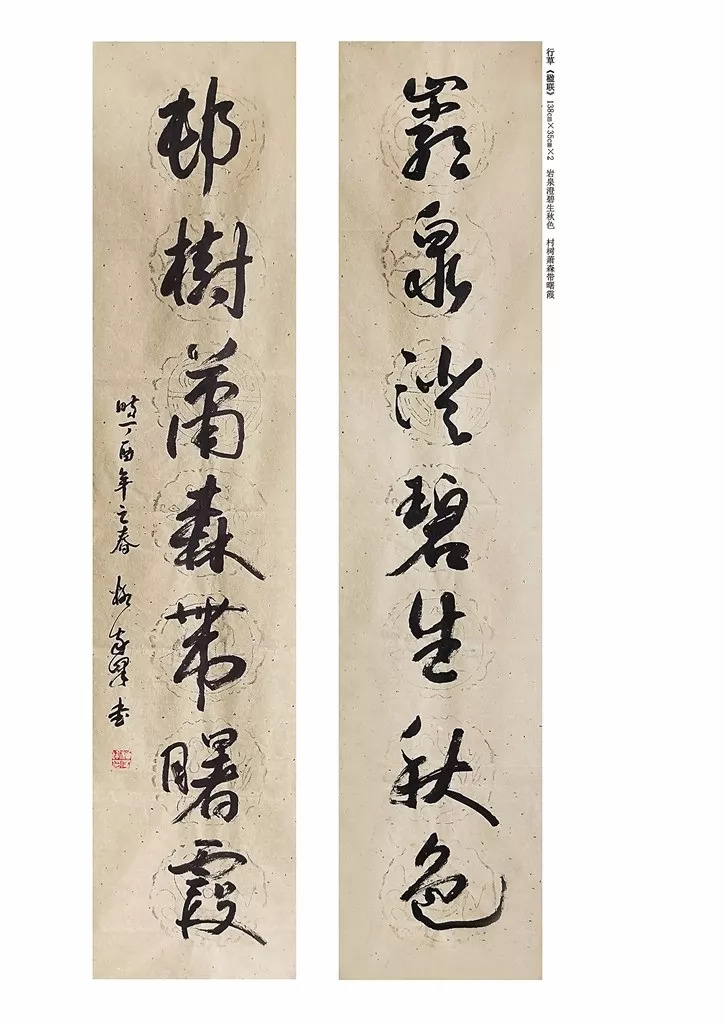 行草《楹联》138cm×35cm×2　岩泉澄碧生秋色　村树萧森带曙霞
巖泉澄碧生秋色
邨樹蕭森帶曙霞
時丁酉年之春 書